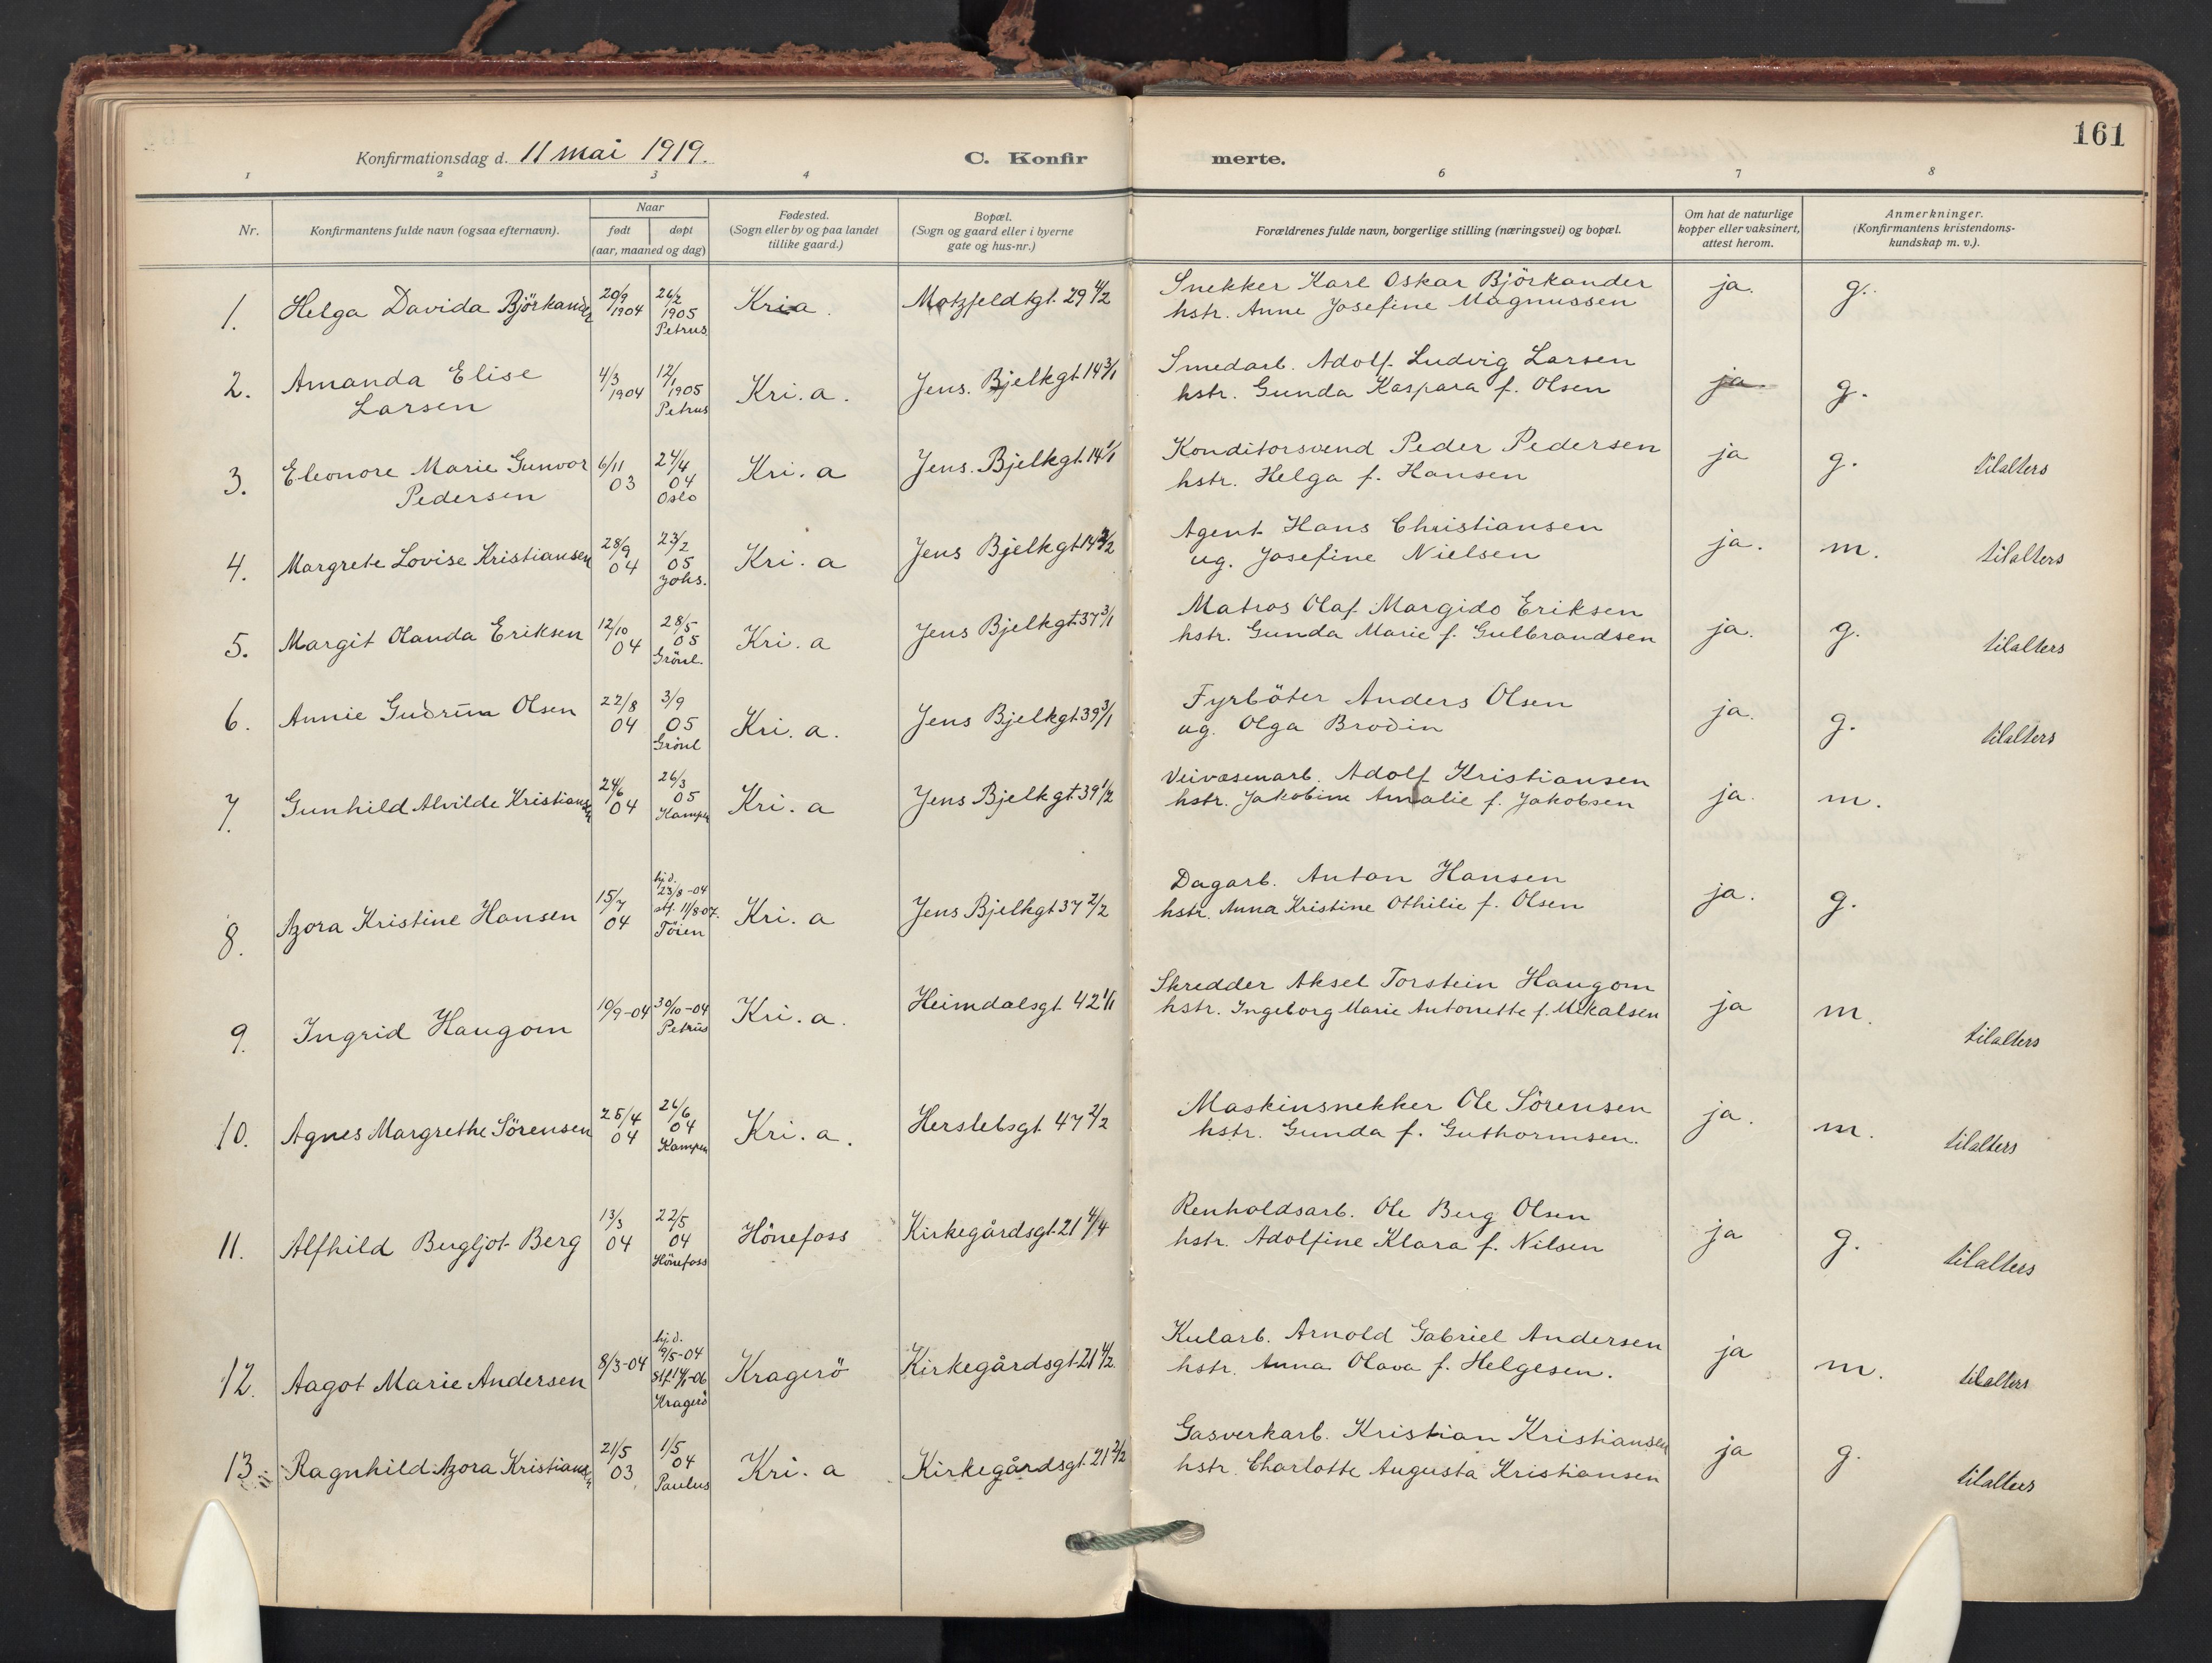 161
Konfirmationsdag d. 11 mai 1919.
C. Konfirmerte.
1 2 3 4 6 7 8
Nr.
Konfirmantens fulde navn (ogsaa efternavn).
Naar
født
døpt
(aar, maaned og dag)
Fødested.
(Sogn eller by og paa landet
tillike gaard.)
Bopæl.
(Sogn og gaard eller i byerne
gate og hus-nr.)
Forældrenes fulde navn, borgerlige stilling (næringsvei) og bopæl.
Om hat de naturlige
kopper eller vaksinert,
attest herom.
Anmerkninger.
(Konfirmantens kristendoms-
kundskap m. v.).
1. Helga Davida Björkander 20/9 1904 26/2 1905 Petrus Kria. Motzfeldtgt. 29 4/2
Snekker Karl Oskar Björkander
hstr. Anne Josefine Magnussen
ja. g.
2. Amanda Elise
Larsen
4/3 1904 12/1 1905 Petrus Kri. a. Jens. Bjelkgt. 14 3/1
Smedarb. Adolf Ludvig Larsen
hstr. Gunda Kaspara f. Olsen
ja g.
3. Eleonore Marie Gunvor
Pedersen
6/11 03 24/4 04 Oslo Kri. a Jens. Bjelkgt. 14 1/1
Konditorsvend Peder Pedersen
hstr. Helga f. Hansen
ja g. tilalters
4. Margrete Lovise Kristiansen 28/9 04 23/2 05 Johs. Kri. a Jens Bjelkgt 14
Agent Hans Christiansen
ug. Josefine Nielsen
ja. m. tilalters
5. Margit Olanda Eriksen 12/10 04 28/5 05 Grönl. Kri. a Jens Bjelkgt 37 3/1
Matros Olaf Margido Eriksen
hstr. Gunda Marie f. Gulbrandsen
ja. g. tilalters
6. Annie Gudrun Olsen 22/8 04 3/9 05 Grönl Kri. a. Jens Bjelkgt. 39 3/1
Fyrböter Anders Olsen
ug. Olga Brodin
ja. g. tilalters
7. Gunhild Alvilde Kristiansen 24/6 04 26/3 05 Kampen Kri. a Jens Bjelkgt. 39 1/2
Veivæsenarb. Adolf Kristiansen
hstr. Jakobine Amalie f. Jakobsen
ja. m.
8. Azora Kristine Hansen 15/7 04 hj.d. 23/8-04 stf. 11/8-07. Töien Kri. a Jens Bjelkgt 37 2/2
Dagarb. Anton Hansen
hstr. Anna Kristine Othilie f. Olsen
ja. g.
9. Ingrid Haugom 10/9-04 30/10-04 Petrus Kri. a. Heimdalsgt. 42 1/1
Skredder Aksel Torstein Haugom
hstr. Ingeborg Marie Antonette f. Mikalsen
ja m. tilalters
10. Agnes Margrethe Sörensen 25/4 04 26/6 04 Kampen Kri. a. Herslebsgt. 47 2/2
Maskinsnekker Ole Sörensen
hstr. Gunda f. Guthormsen.
ja. m. tilalters
11. Alfhild Bergljot Berg 13/3 04 22/5 04 Hönefoss Hönefoss Kirkegårdsgt. 21 4/4
Renholdsarb. Ole Berg Olsen
hstr. Adolfine Klara f. Nilsen
ja g. tilalters
12. Aagot Marie Andersen 8/3-04 hj.d. 9/5-04 Kragerö Kragerö Kirkegårdsgt. 21 4/2
Kularb. Arnold Gabriel Andersen
hstr. Anna Olava f. Helgesen.
ja m. tilalters
13. Ragnhild Azora Kristiansen 21/5 03 1/5 04 Paulus Kri. a Kirkegårdsgt. 21 2/2
Gasverkarb. Kristian Kristiansen
hstr. Charlotte Augusta Kristiansen
ja g. tilalters